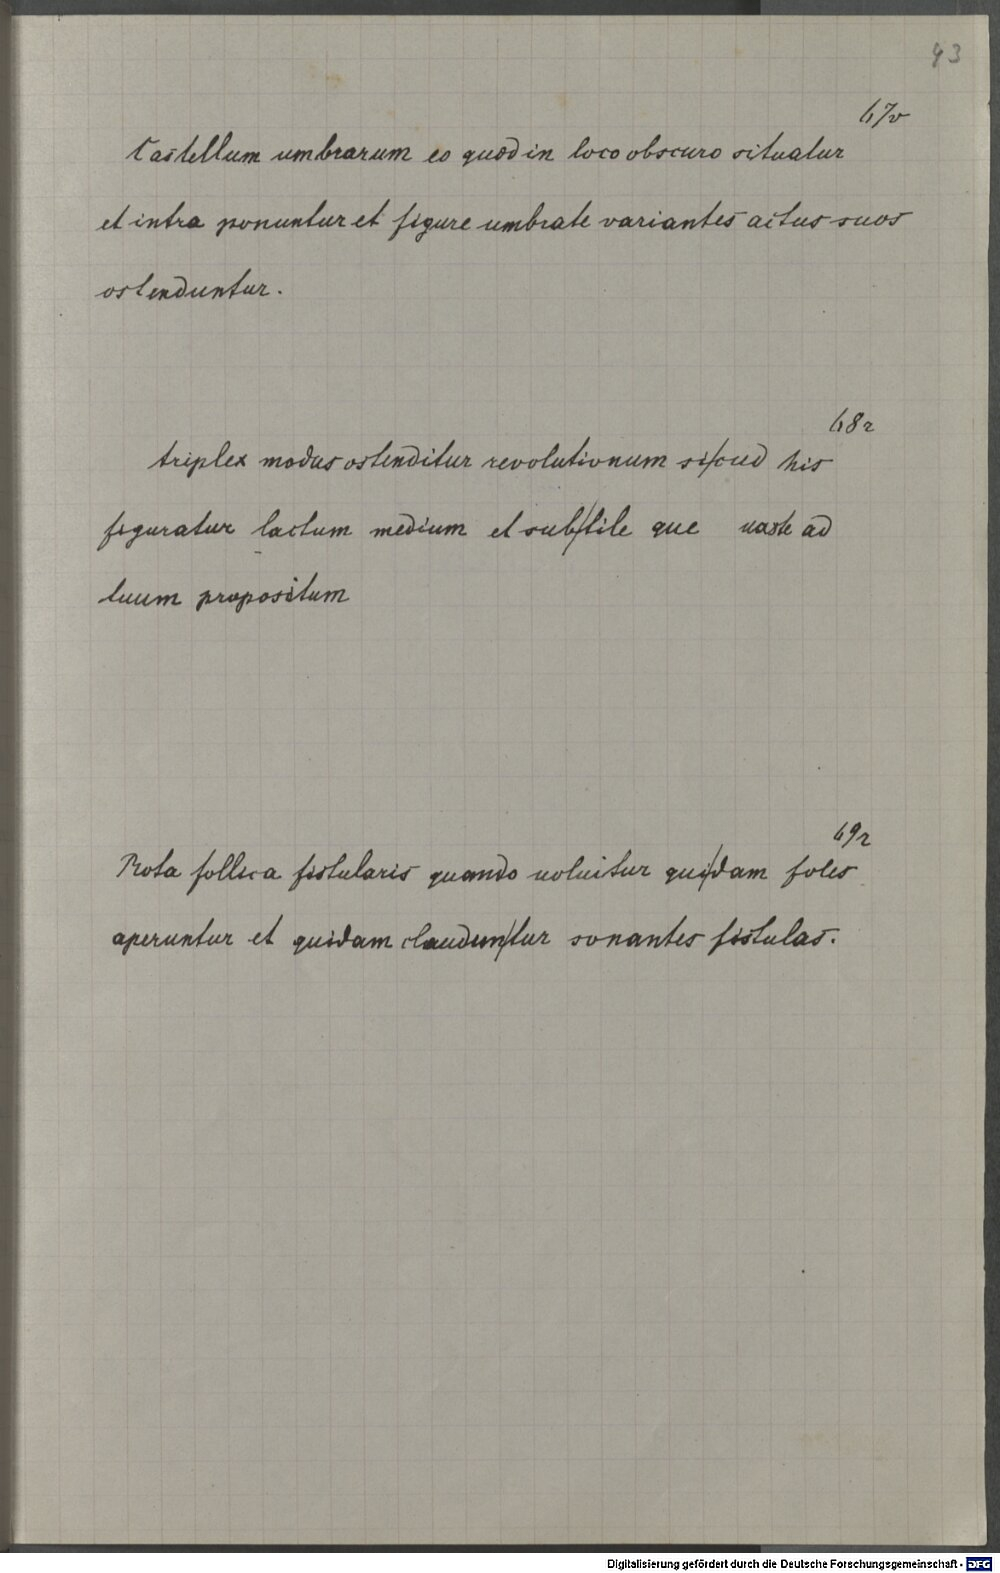 43
67v
Castellum umbrarum eo quod in loco obscuro situatur
et intra ponuntur et figure umbrate variantes actus suos
ostenduntur.
68r
triplex modus ostenditur revolutionum si/cud his
figuratur lactum medium et sub/tile que uaste ad
tuum propositum
69r
Rota follica fistularis quando uoluitur qui/dam foles
aperuntur et quidam claudun/tur sonantes fistulas.
Digitalisierung gefördert durch die Deutsche Forschungsgemeinschaft - DFG